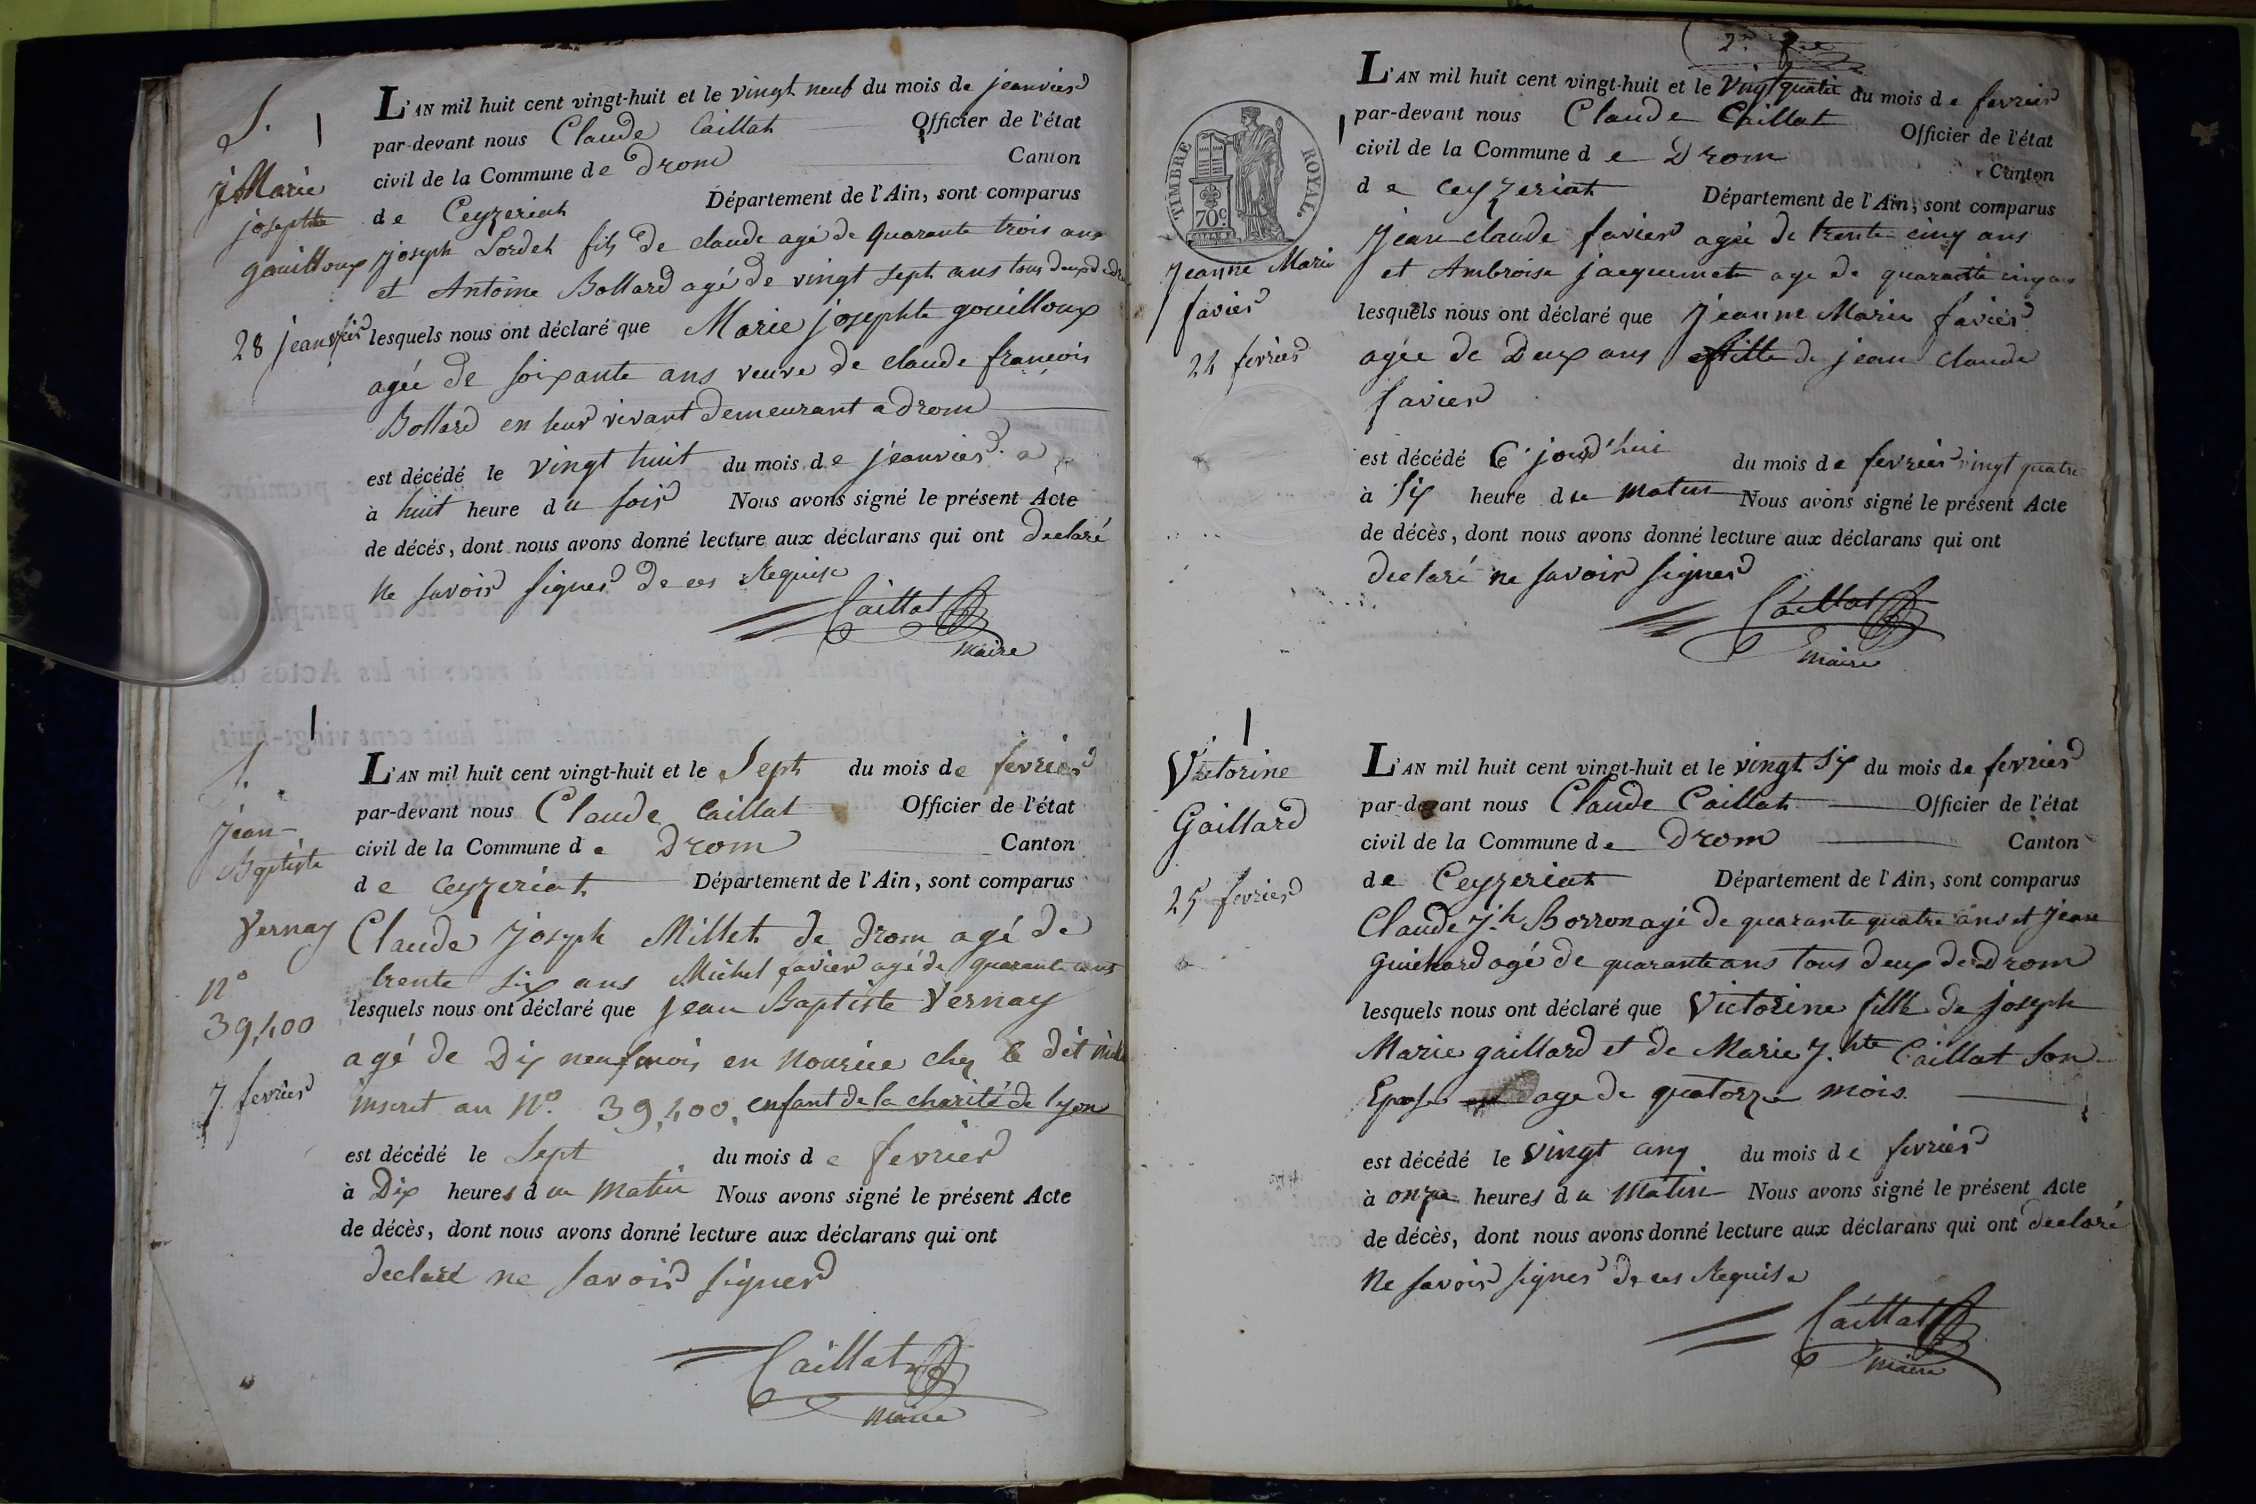 1.
Marie
josephte
gouilloux
28 jeanvier
L'AN mil huit cent vingt-huit et le vingt neuf du mois de jeanvier
par-devant nous Claude Caillat Officier de l'état
civil de la Commune de Drom Canton
de Ceyzeriat Département de l'Ain, sont comparus
joseph Sordet fils de claude agé de quarante trois ans
et Antoine Bollard agé de vingt sept ans tous deux de
lesquels nous ont déclaré que Marie josephte gouilloux
agée de soixante ans veuve de claude françois
Bollard en leur vivant demeurant a drom
est décédé le vingt huit du mois de jeanvier a
à huit heure du soir Nous avons signé le présent Acte
de décés, dont nous avons donné lecture aux déclarans qui ont declaré
ne savoir signer de ces Requise
Caillat
maire
1.
jean
Baptiste
Vernay
n°
39,400
7 fevrier
L'AN mil huit cent vingt-huit et le Sept du mois de fevrier
par-devant nous Claude Caillat Officier de l'état
civil de la Commune de Drom Canton
de Ceyzeriat Département de l'Ain, sont comparus
Claude joseph Millet de drom agé de
trente six ans Michel favier agé de quarante ans
lesquels nous ont déclaré que jean Baptiste Vernay
agé de Dix neuf mois en nourice chez le dit
inscrit au N°. 39,400, enfant de la charité de lyon
est décédé le Sept du mois de fevrier
à Dix heures du matin Nous avons signé le présent Acte
de décès, dont nous avons donné lecture aux déclarans qui ont
declaré ne savoir signer
Caillat
maire
2.
TIMBRE ROYAL.
70c
jeanne Marie
favier
24 fevrier
L'AN mil huit cent vingt-huit et le Vingt quatre du mois de fevrier
par-devant nous Claude Caillat Officier de l'état
civil de la Commune de Drom Canton
de Ceyzeriat Département de l'Ain, sont comparus
jean claude favier agée de trente cinq ans
et Ambroise jacquemet age de quarante cinq ans
lesquels nous ont déclaré que jeanne Marie favier
agée de Deux ans fille de jean claude
favier
est décédé Ce jourd'hui du mois de fevrier vingt quatre
à Six heure du matin Nous avons signé le présent Acte
de décès, dont nous avons donné lecture aux déclarans qui ont
declaré ne savoir signer
Caillat
maire
Victorine
Gaillard
25 fevrier
L'AN mil huit cent vingt-huit et le vingt six du mois de fevrier
par-devant nous Claude Caillat Officier de l'état
civil de la Commune de Drom Canton
de Ceyzeriat Département de l'Ain, sont comparus
Claude j.h Borron agé de quarante quatre ans et jean
Guichard agé de quarante ans tous deux de Drom
lesquels nous ont déclaré que Victorine fille de joseph
Marie gaillard et de Marie j.hte Caillat Son
Epose age de quatorze mois.
est décédé le vingt cinq du mois de fevrier
à onze heures du Matin Nous avons signé le présent Acte
de décès, dont nous avons donné lecture aux déclarans qui ont declaré
ne savoir signer de ces Requise
Caillat
maire